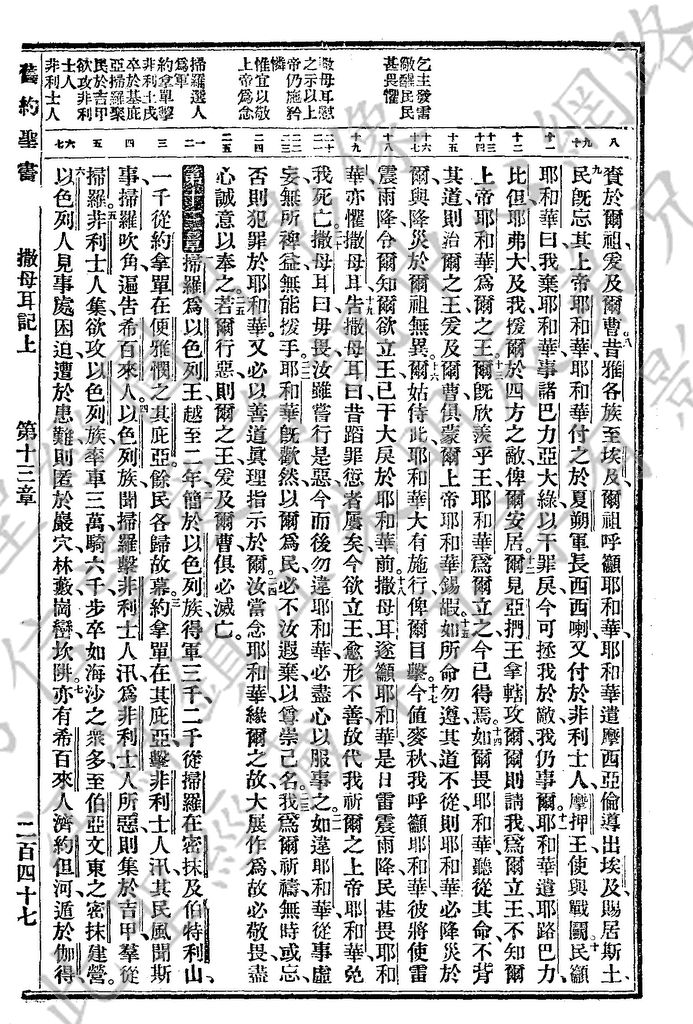 賚於爾祖爰及爾曹昔雅各族至埃及爾祖呼籲耶和華耶和華遣摩西亞倫導出埃及賜居斯土
民旣忘其上帝耶和華耶和華付之於夏朔軍長西西喇又付於非利士人摩押王使與戰鬭民籲
耶和華曰我棄耶和華事諸巴力亞大綠以干罪戾今可拯我於敵我仍事爾耶和華遣耶路巴力
比但耶弗大及我援爾於四方之敵俾爾安居爾見亞捫王拿轄攻爾爾則請我爲爾立王不知爾
上帝耶和華爲爾之王爾旣欣羨乎王耶和華爲爾立之今已得焉如爾畏耶和華聽從其命不背
其道則治爾之王爰及爾曹俱蒙爾上帝耶和華錫嘏如所命勿遵其道不從則耶和華必降災於
爾與降災於爾祖無異爾姑待此耶和華大有施行俾爾目擊今値麥秋我呼籲耶和華彼將使雷
震雨降令爾知爾欲立王已干大戾於耶和華前撒母耳遂籲耶和華是日雷震雨降民甚畏耶和
華亦懼撒母耳吿撒母耳曰昔蹈罪愆者屢矣今欲立王愈形不善故代我祈爾之上帝耶和華免
我死亡撒母耳曰毋畏汝雖嘗行是惡今而後勿違耶和華必盡心以服事之如違耶和華從事虛
妄無所裨益無能援手耶和華旣歡然以爾爲民必不汝遐棄以尊崇己名我爲爾祈禱無時或忘
否則犯罪於耶和華又必以善道眞理指示於爾汝當念耶和華緣爾之故大展作爲故必敬畏盡
心誠意以奉之若爾行惡則爾之王爰及爾曹俱必滅亡
第十三章掃羅爲以色列王越至二年簡於以色列族得軍三千二千從掃羅在密抹及伯特利山
一千從約拿單在便雅憫之其庇亞餘民各歸故幕約拿單在其庇亞擊非利士人汛其民風聞斯
事掃羅吹角遍吿希百來人以色列族聞掃羅擊非利士人汛爲非利士人所惡則集於吉甲羣從
掃羅非利士人集欲攻以色列族率車三萬騎六千步卒如海沙之衆多至伯亞文東之密抹建營
以色列人見事處困迫遭於患難則匿於巖穴林藪崗巒坎阱亦有希百來人濟約但河遁於伽得
乞主發雷
儆醒民民
甚畏懼
撒母耳慰
之示以上
帝仍施矜
憐
惟宜以敬
上帝爲念
掃羅選人
爲軍
約拿單擊
非利士戍
卒於基庇
亞掃羅聚
民於吉甲
欲攻非利
士人
非利士人
舊約聖書
撒母耳記上
第十三章
二百四十七